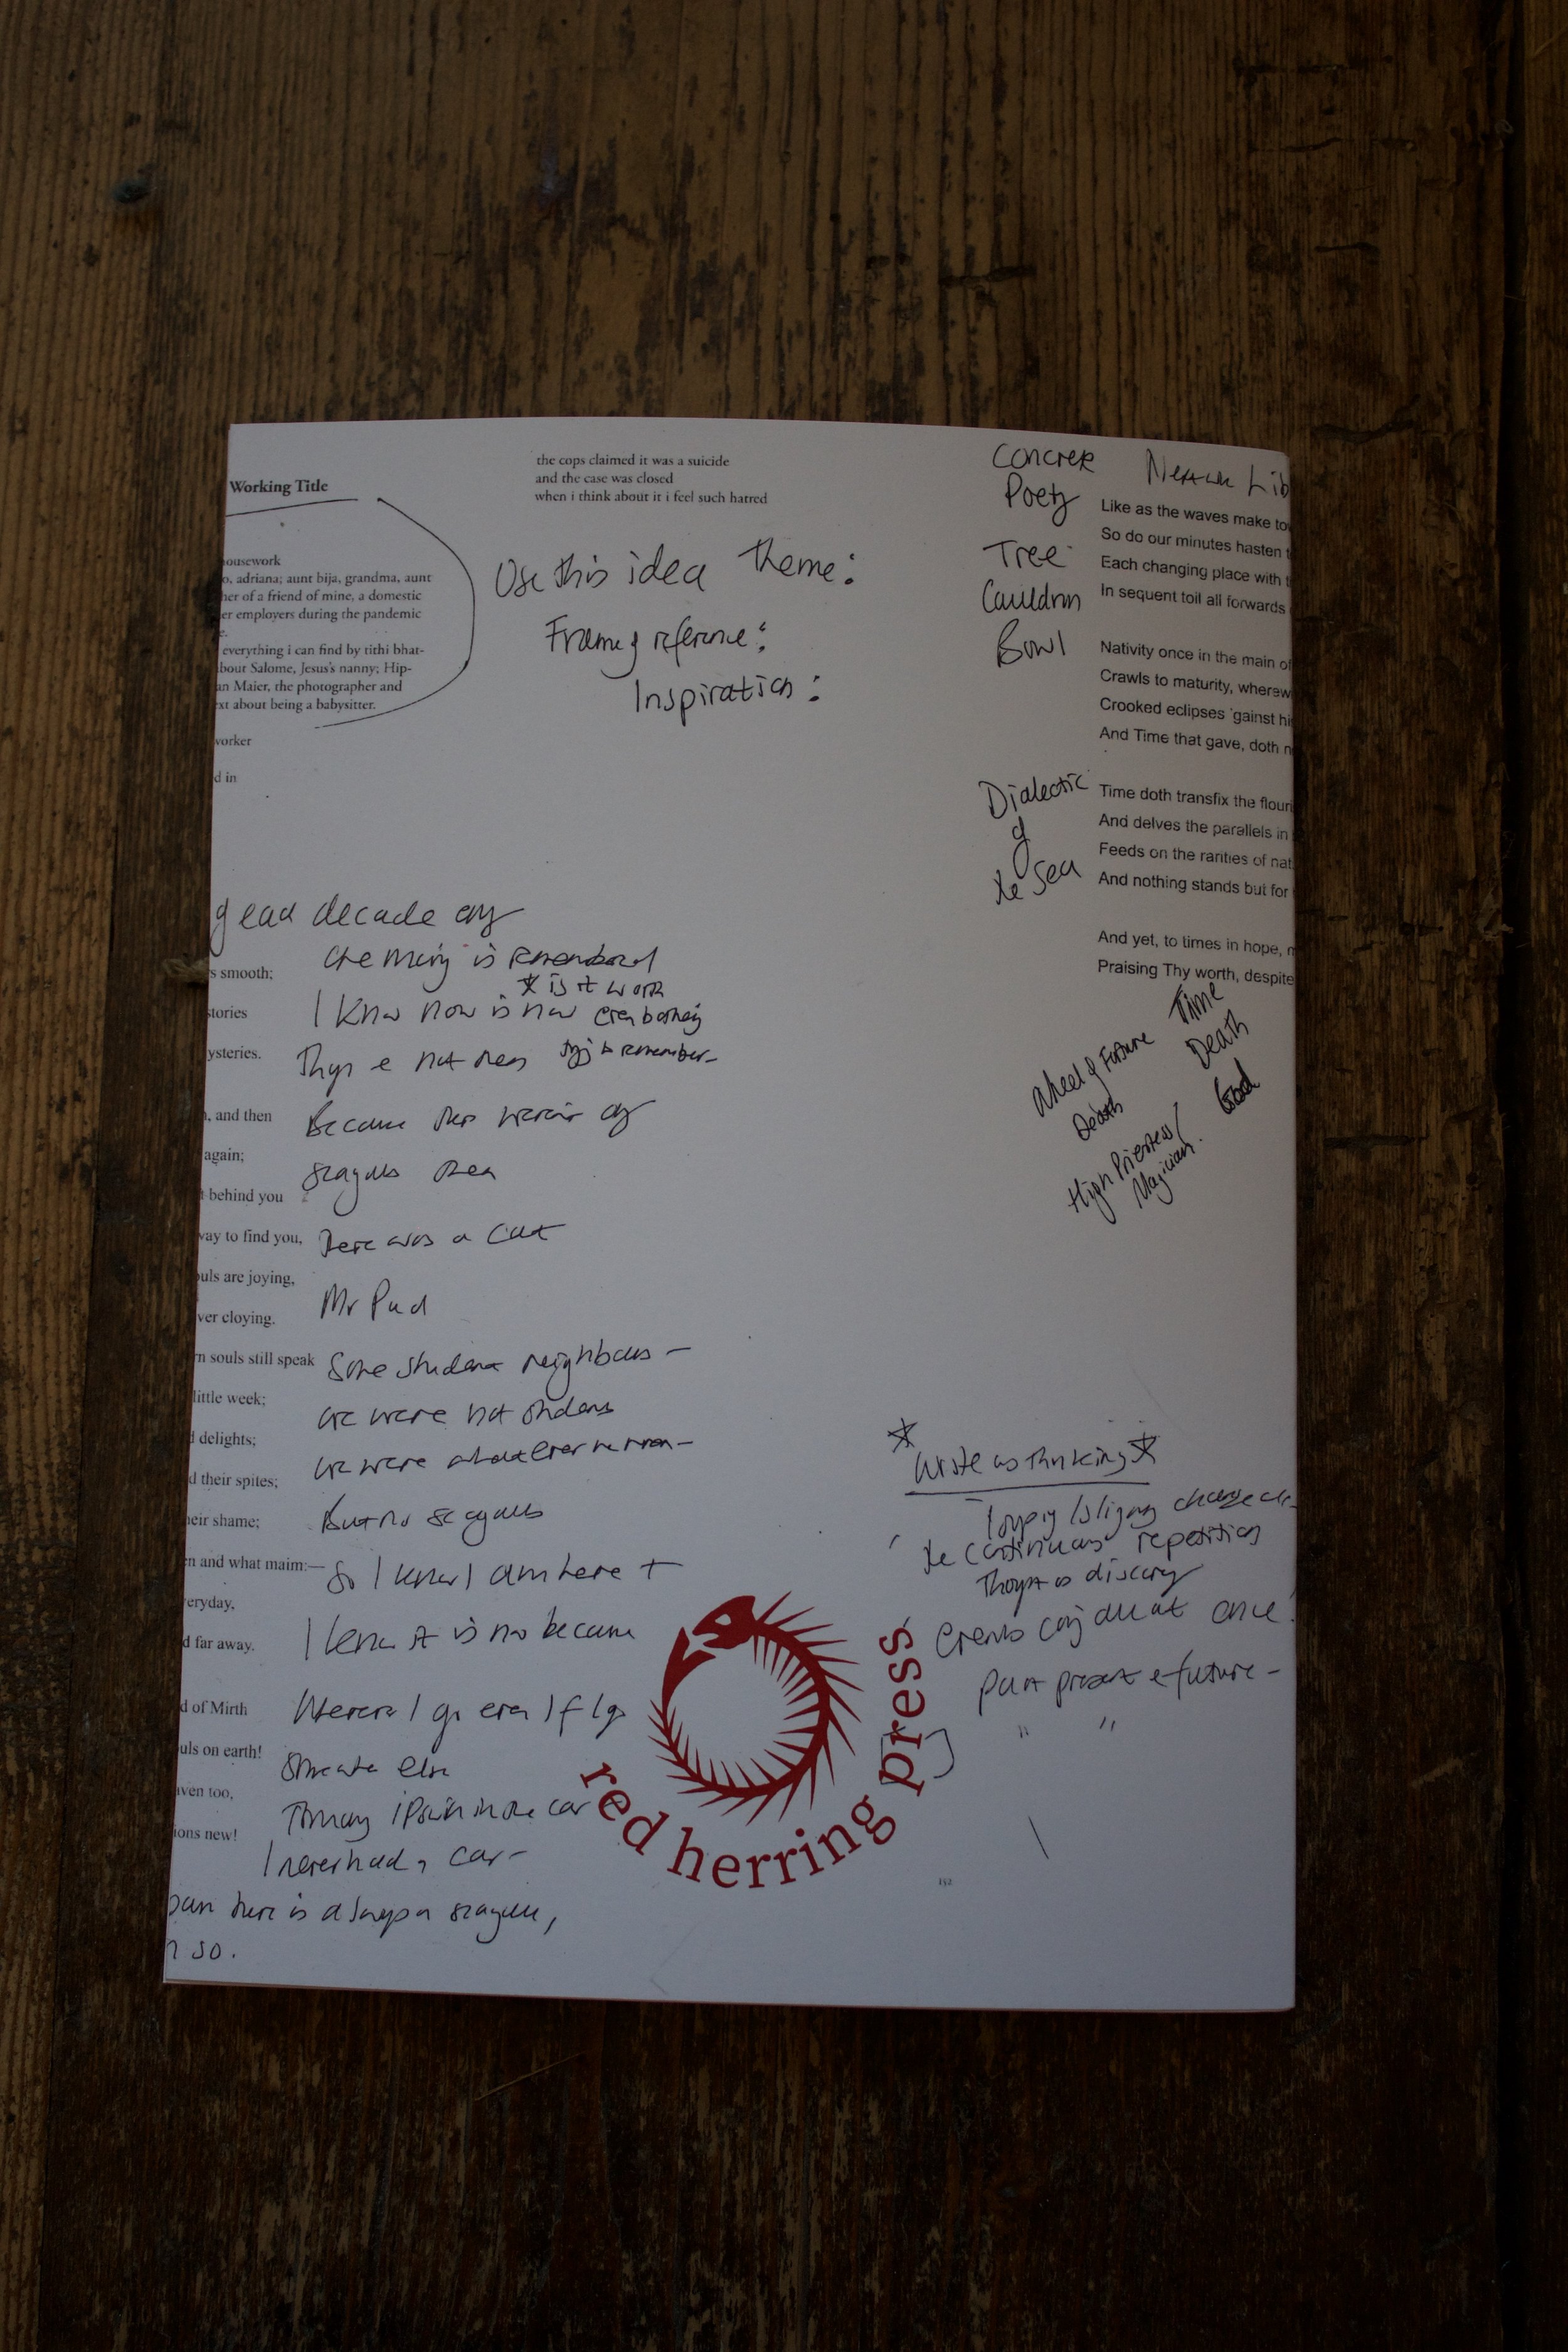 Working Title
housework
o, adriana; aunt bija, grandma, aunt
her of a friend of mine, a domestic
er employers during the pandemic
e.
everything i can find by tithi bhat-
bout Salome, Jesus's nanny; Hip-
an Maier, the photographer and
xt about being a babysitter.
worker
d in
the cops claimed it was a suicide
and the case was closed
when i think about it i feel such hatred
Use this idea theme:
Frame of reference:
Inspiration:
Concrete
Poetry
Tree
Cauldron
Bowl
Lib
Like as the waves make to
So do our minutes hasten t
Each changing place with t
In sequent toil all forwards
Nativity once in the main of
Crawls to maturity, wherew
Crooked eclipses 'gainst hi
And Time that gave, doth n
Dialectic
of
the Sea
Time doth transfix the flour
And delves the parallels in
Feeds on the rarities of nat
And nothing stands but for
And yet, to times in hope, m
Praising Thy worth, despite
Time
Death
God
Wheel of Fortune
Death
High Priestess/
Magician.
decade
is remembered
* is it work
I know now is now
trying to remember-
Because
seagulls
there was a cat
Mr Pud
Some student neighbours -
we were not students
we were whatever
But no seagulls
So I knew I am here +
I know it is now because
Wherever I go even if I go
somewhere else
in the car
I never had a car-
there is always a seagull,
so.
s smooth;
stories
ysteries.
n, and then
again;
t behind you
way to find you,
ouls are joying,
ver cloying.
rn souls still speak
little week;
d delights;
d their spites;
heir shame;
en and what maim:—
veryday,
d far away.
d of Mirth
uls on earth!
aven too,
ions new!
* Write as thinking *
change
the continuous repetition
Thought as discovery
Events all at once!
past present & future -
" "
red herring press
152